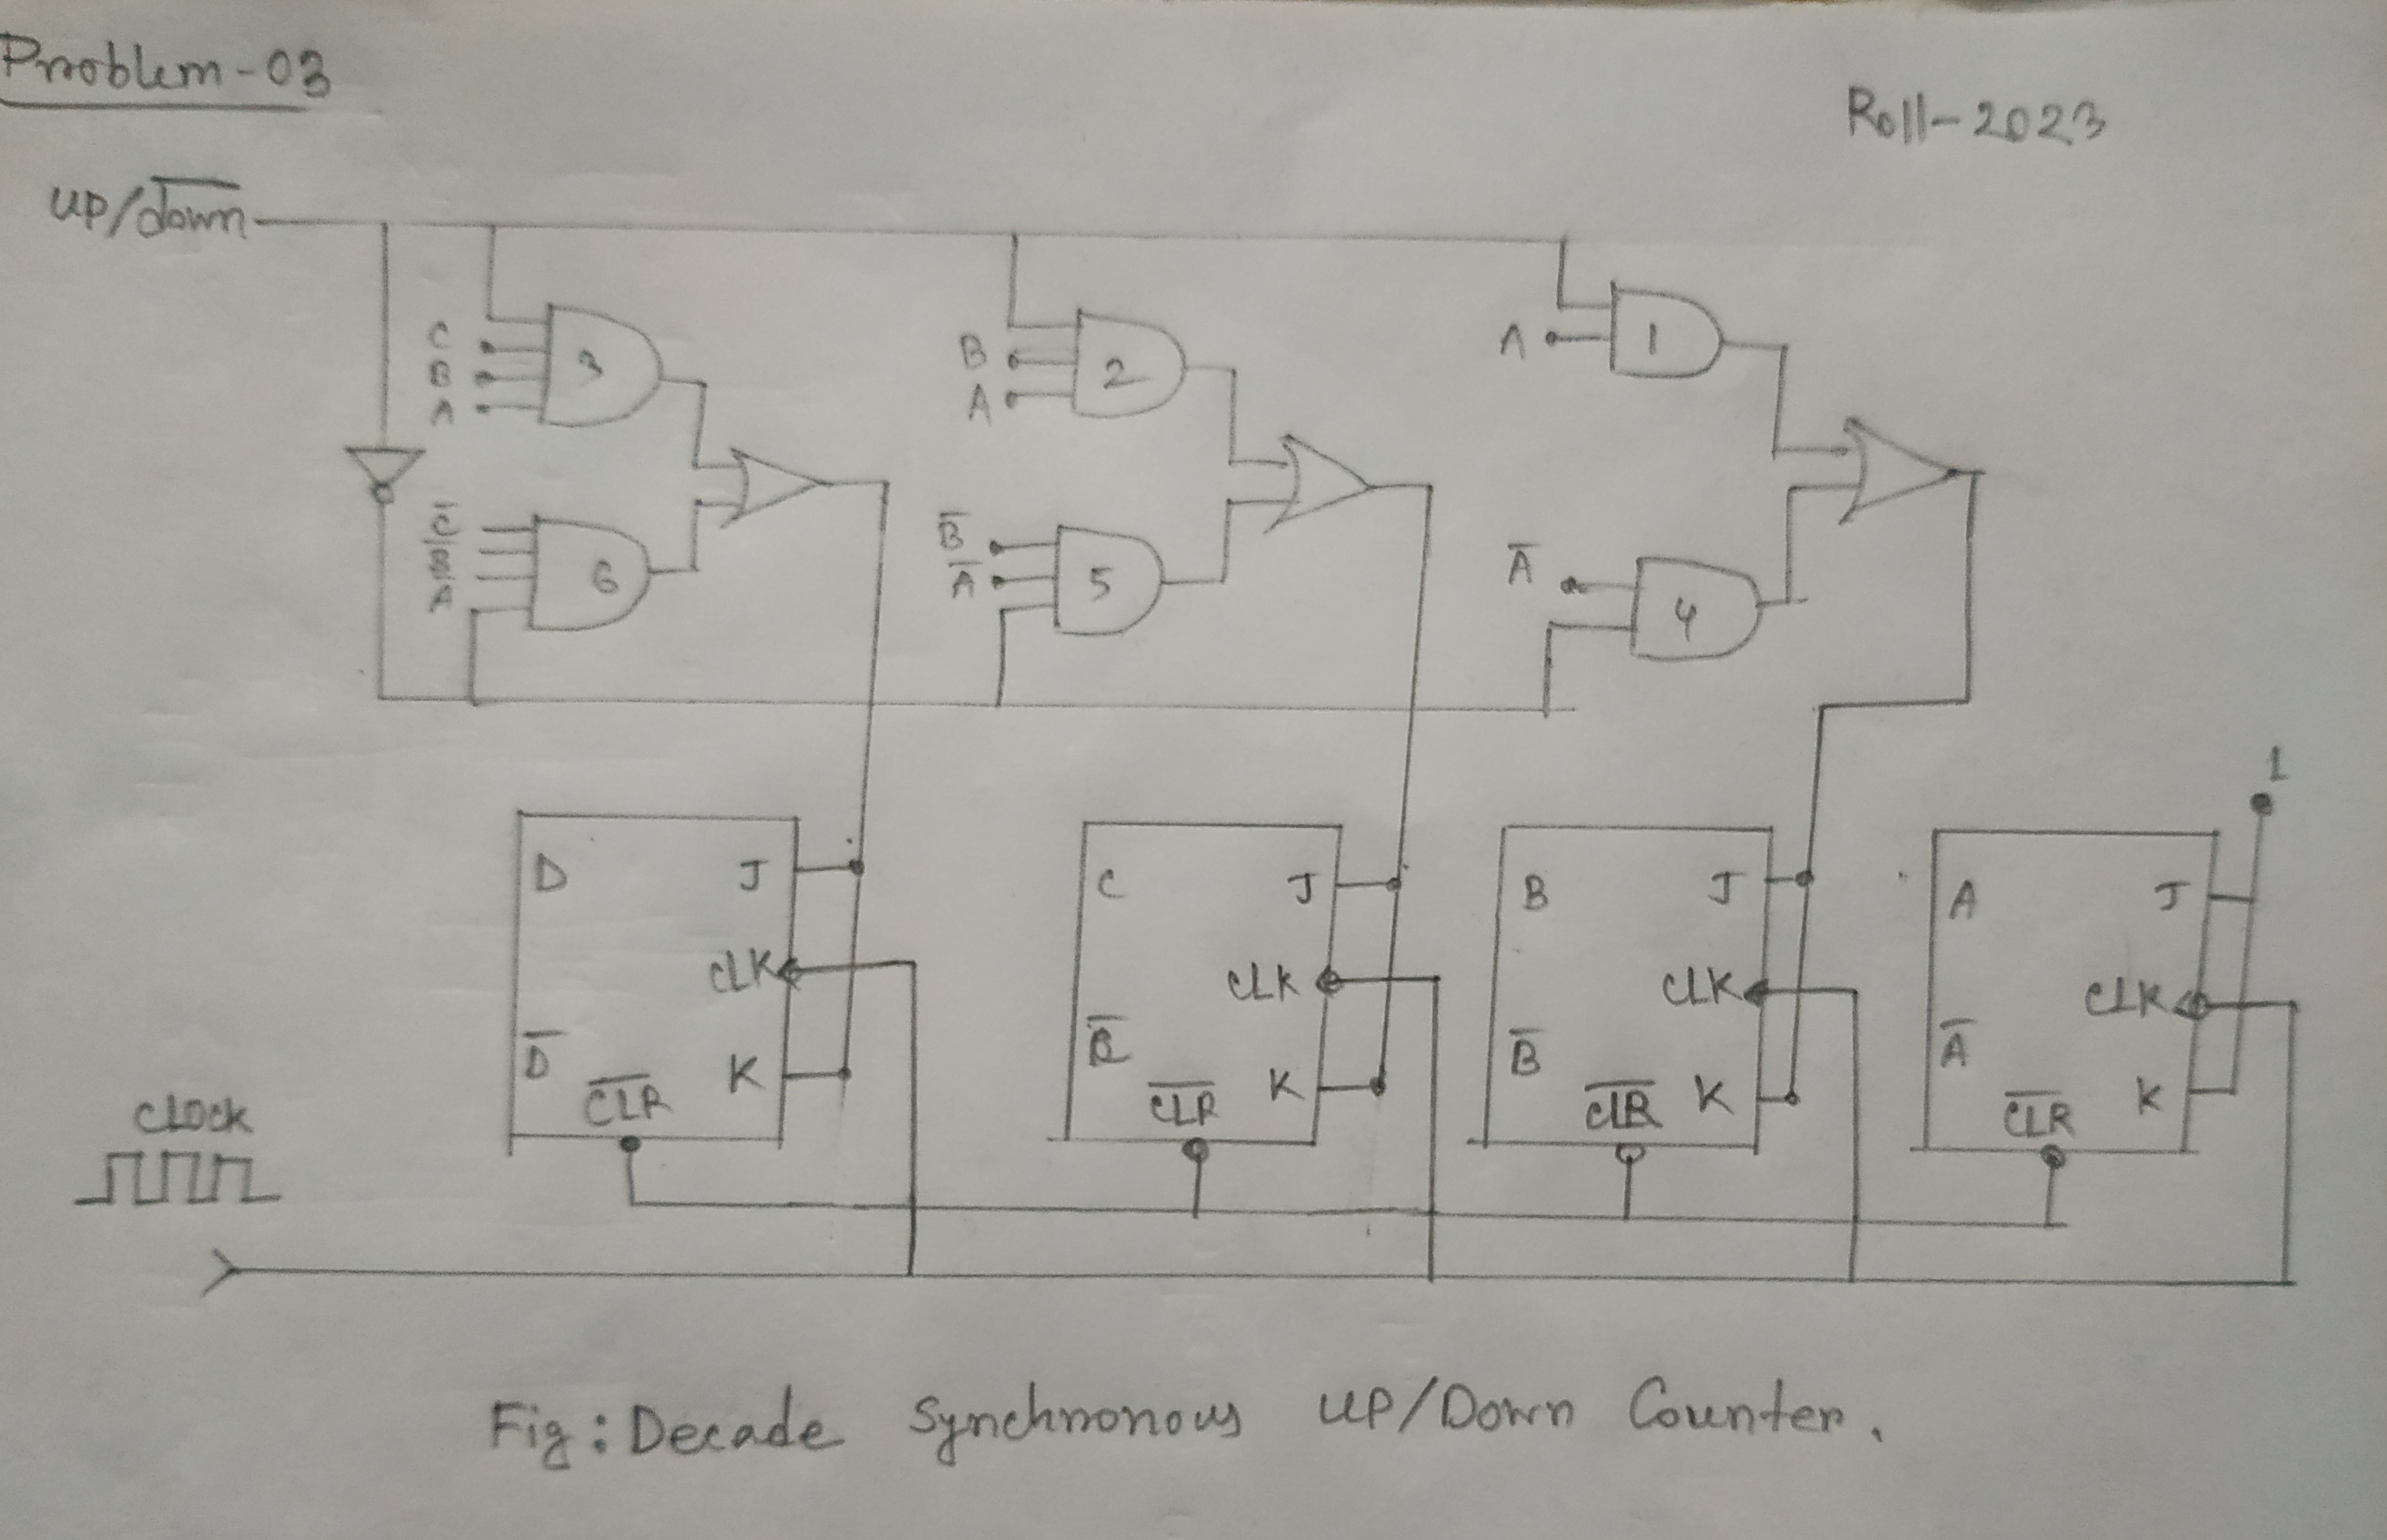 Problem-03
Roll-2023
up/d̅o̅w̅n̅
C
B
A
3
B
A
2
A
1
C̅
B̅
A̅
6
B̅
A̅
5
A̅
4
1
D J
CLK
D̅
C̅L̅R̅ K
C J
CLK
C̅L̅R̅ K
B J
CLK
B̅
C̅L̅R̅ K
A J
CLK
A̅
C̅L̅R̅ K
CLOCK
Fig: Decade Synchronous UP/Down Counter.